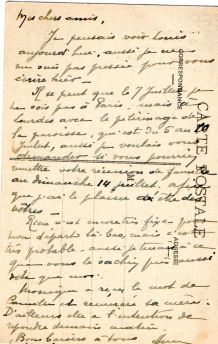 Mes chers amis,
Je pensais voir Louis
aujourd'hui, aussi je ne
me suis pas pressée pour vous
écrire hier —
Il se peut que le 7 Juillet je
ne sois pas à Paris, mais à
Lourdes avec le pèlerinage de
la paroisse, qui est du 5 au
Juillet, aussi je voulais vous
demander si vous pourriez
remettre votre réunion de famille
au dimanche 14 Juillet, afin
que j'aie le plaisir d'être des
vôtres —
Rien n'est encore très fixé pour
mon départ là-bas, mais c'est
très probable - aussi
que vous le sachiez
que moi.
Monique a reçu le mot de
et remercie sa
D'ailleurs elle a l'intention de
répondre demain matin.
Bons baisers à tous
CARTE POSTALE
CORRESPONDANCE
ADRESSE